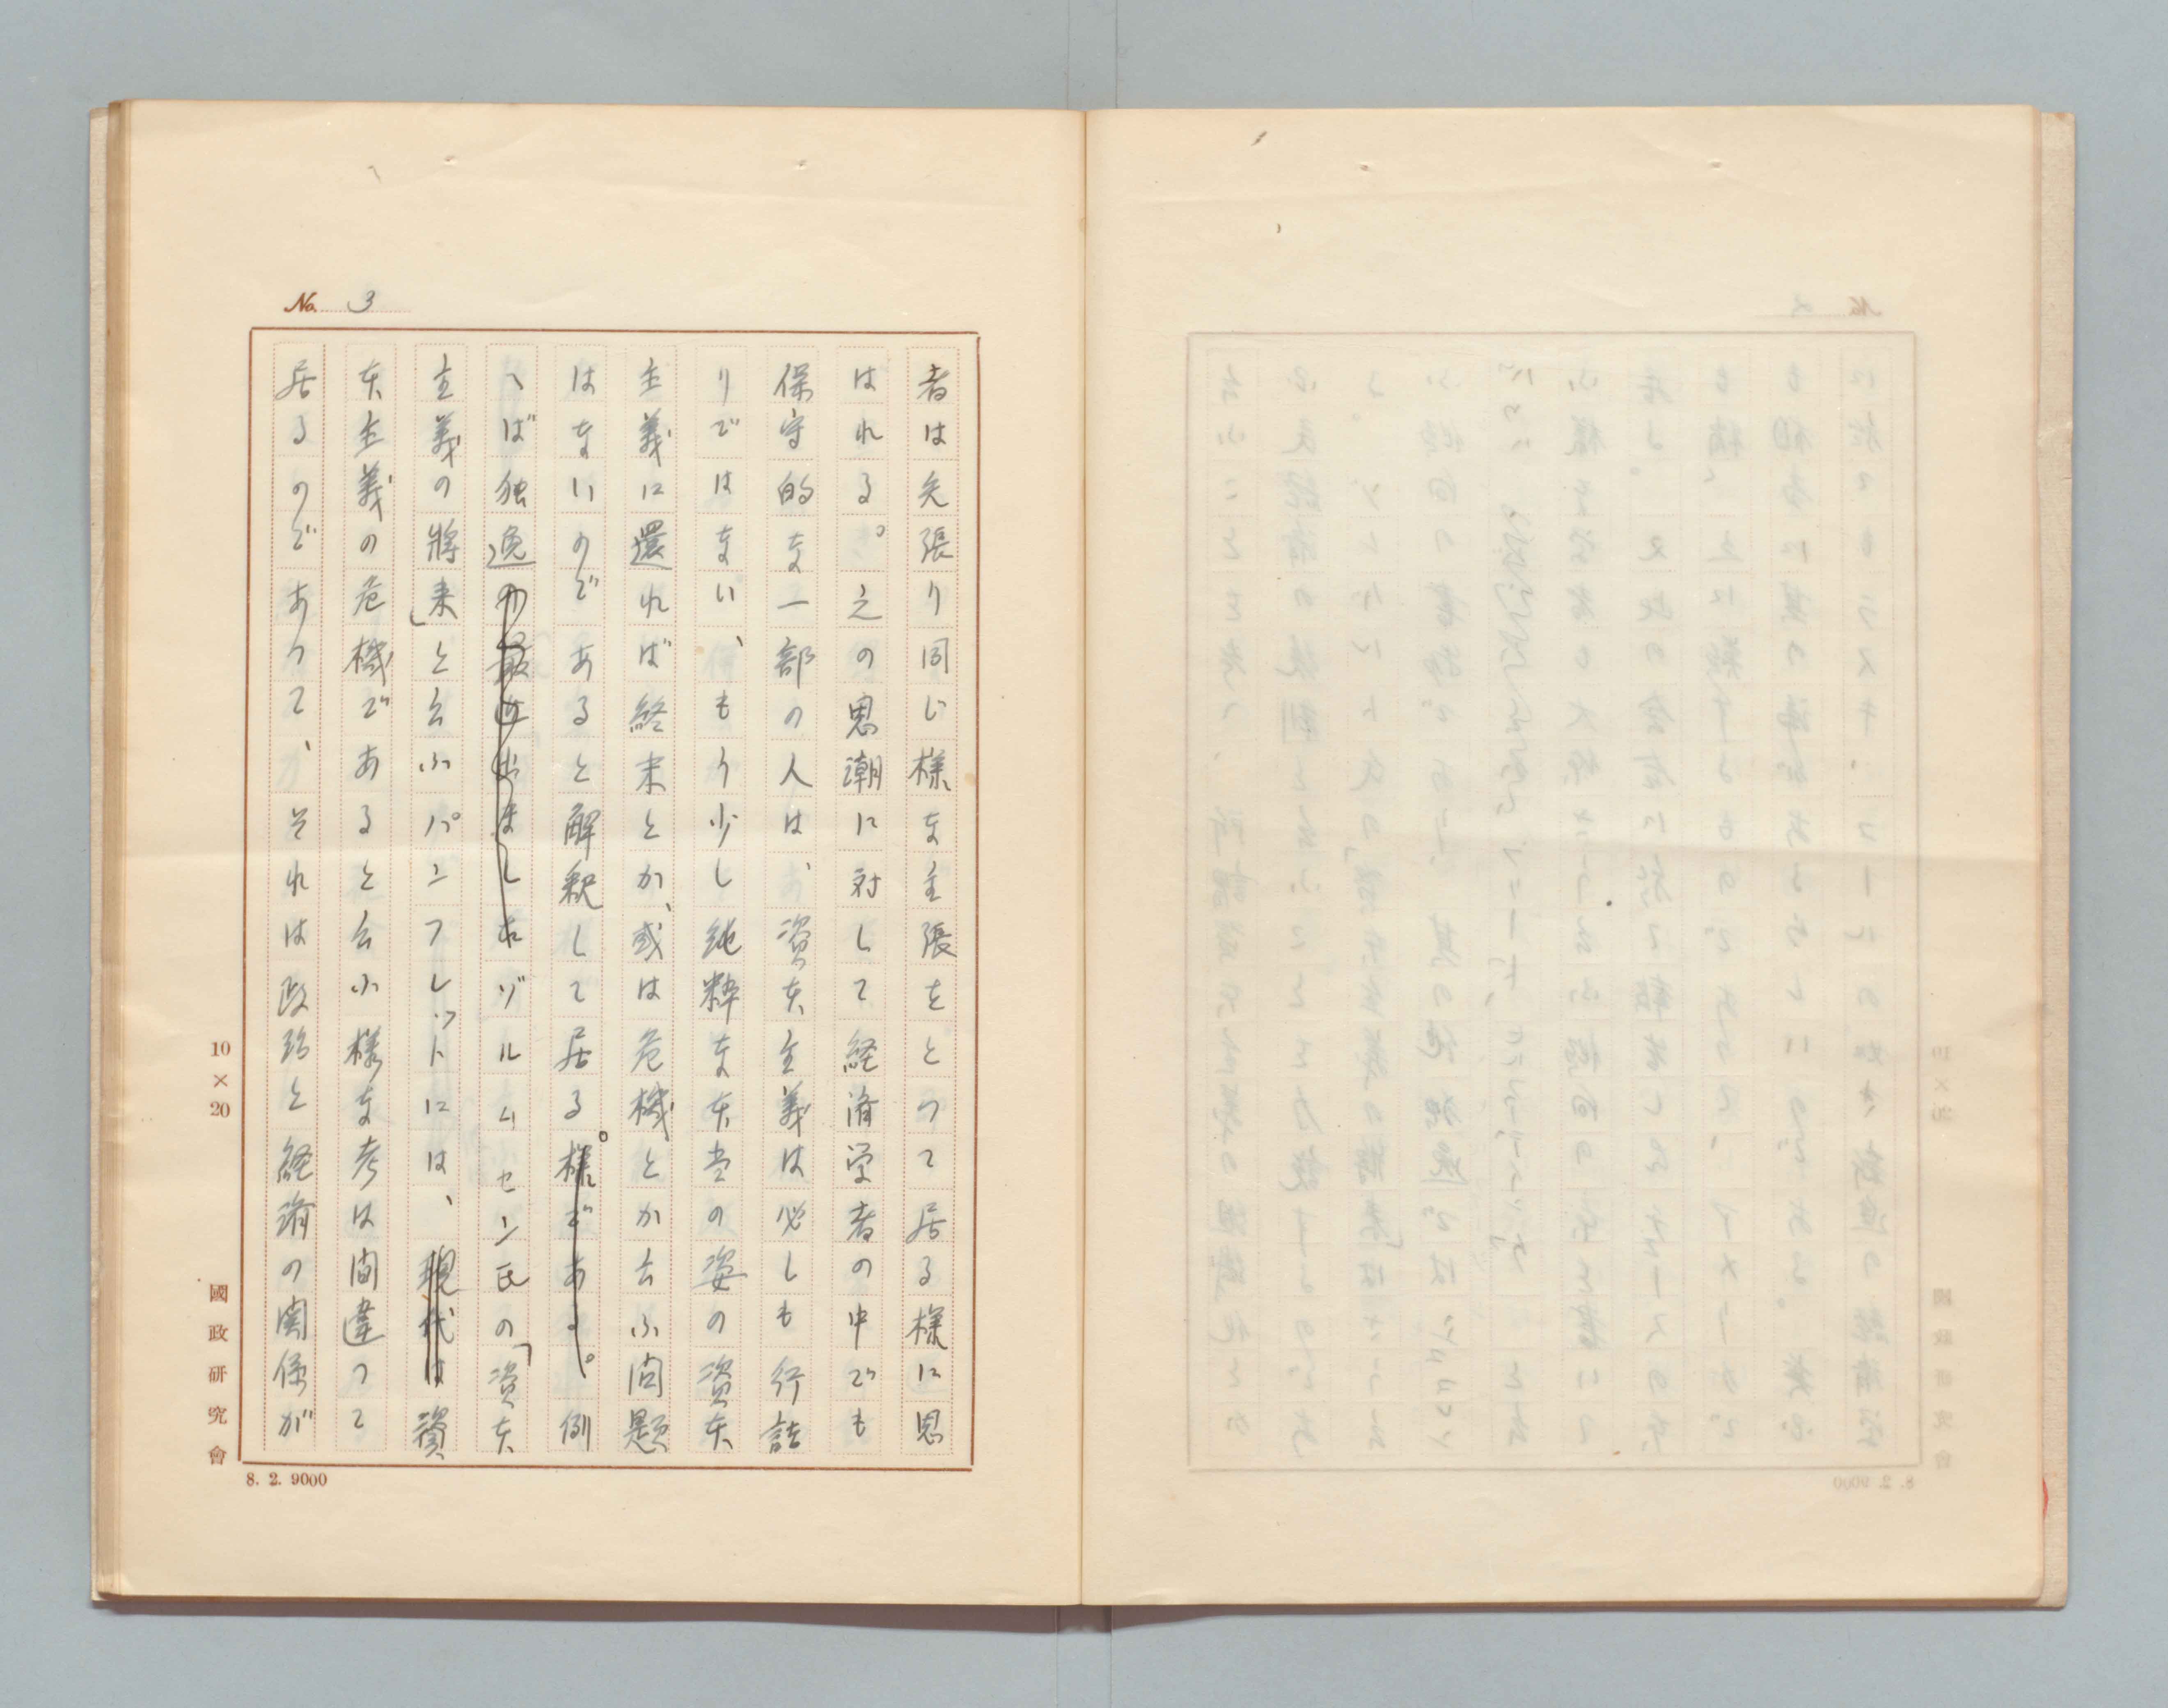 No. 3
者は矢張り同じ様な主張をとつて居る様に思
はれる。之の思潮に対して経済学者の中でも
保守的な一部の人は、資本主義は必しも行詰
りではない、もう少し純粋な本当の姿の資本
主義に還れば終末とか、或は危機とか云ふ問題
はないのであると解釈して居る。様である。例
へば独逸の最近出ましたゾルムセン氏の「資本
主義の将来」と云ふパンフレツトには、現代は資
本主義の危機であると云ふ様な考は間違つて
居るのであつて、それは政治と経済の関係が
10×20
國政研究會
8. 2. 9000